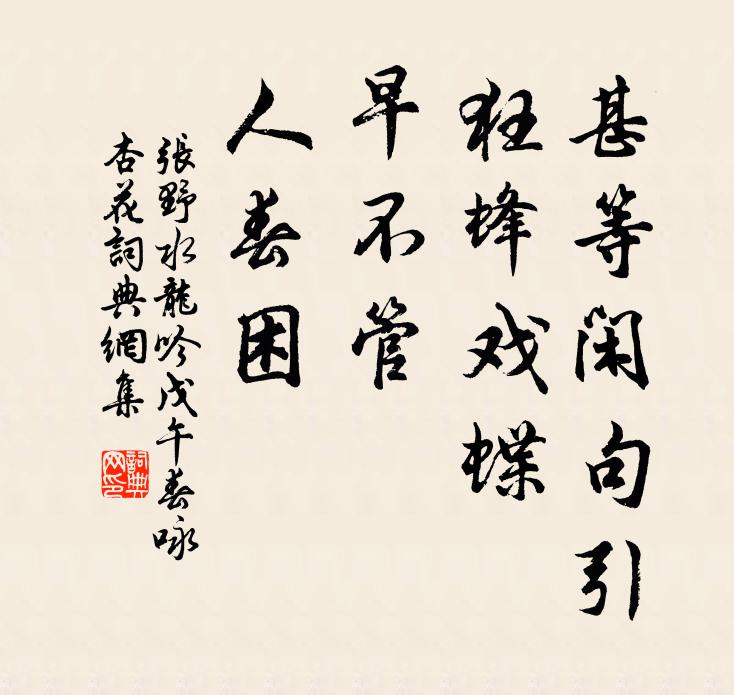 甚等閑句引
狂蜂戏蝶
早不管
人春困
張野水龍吟戊午春咏
杏花詞典網集
詞典网印